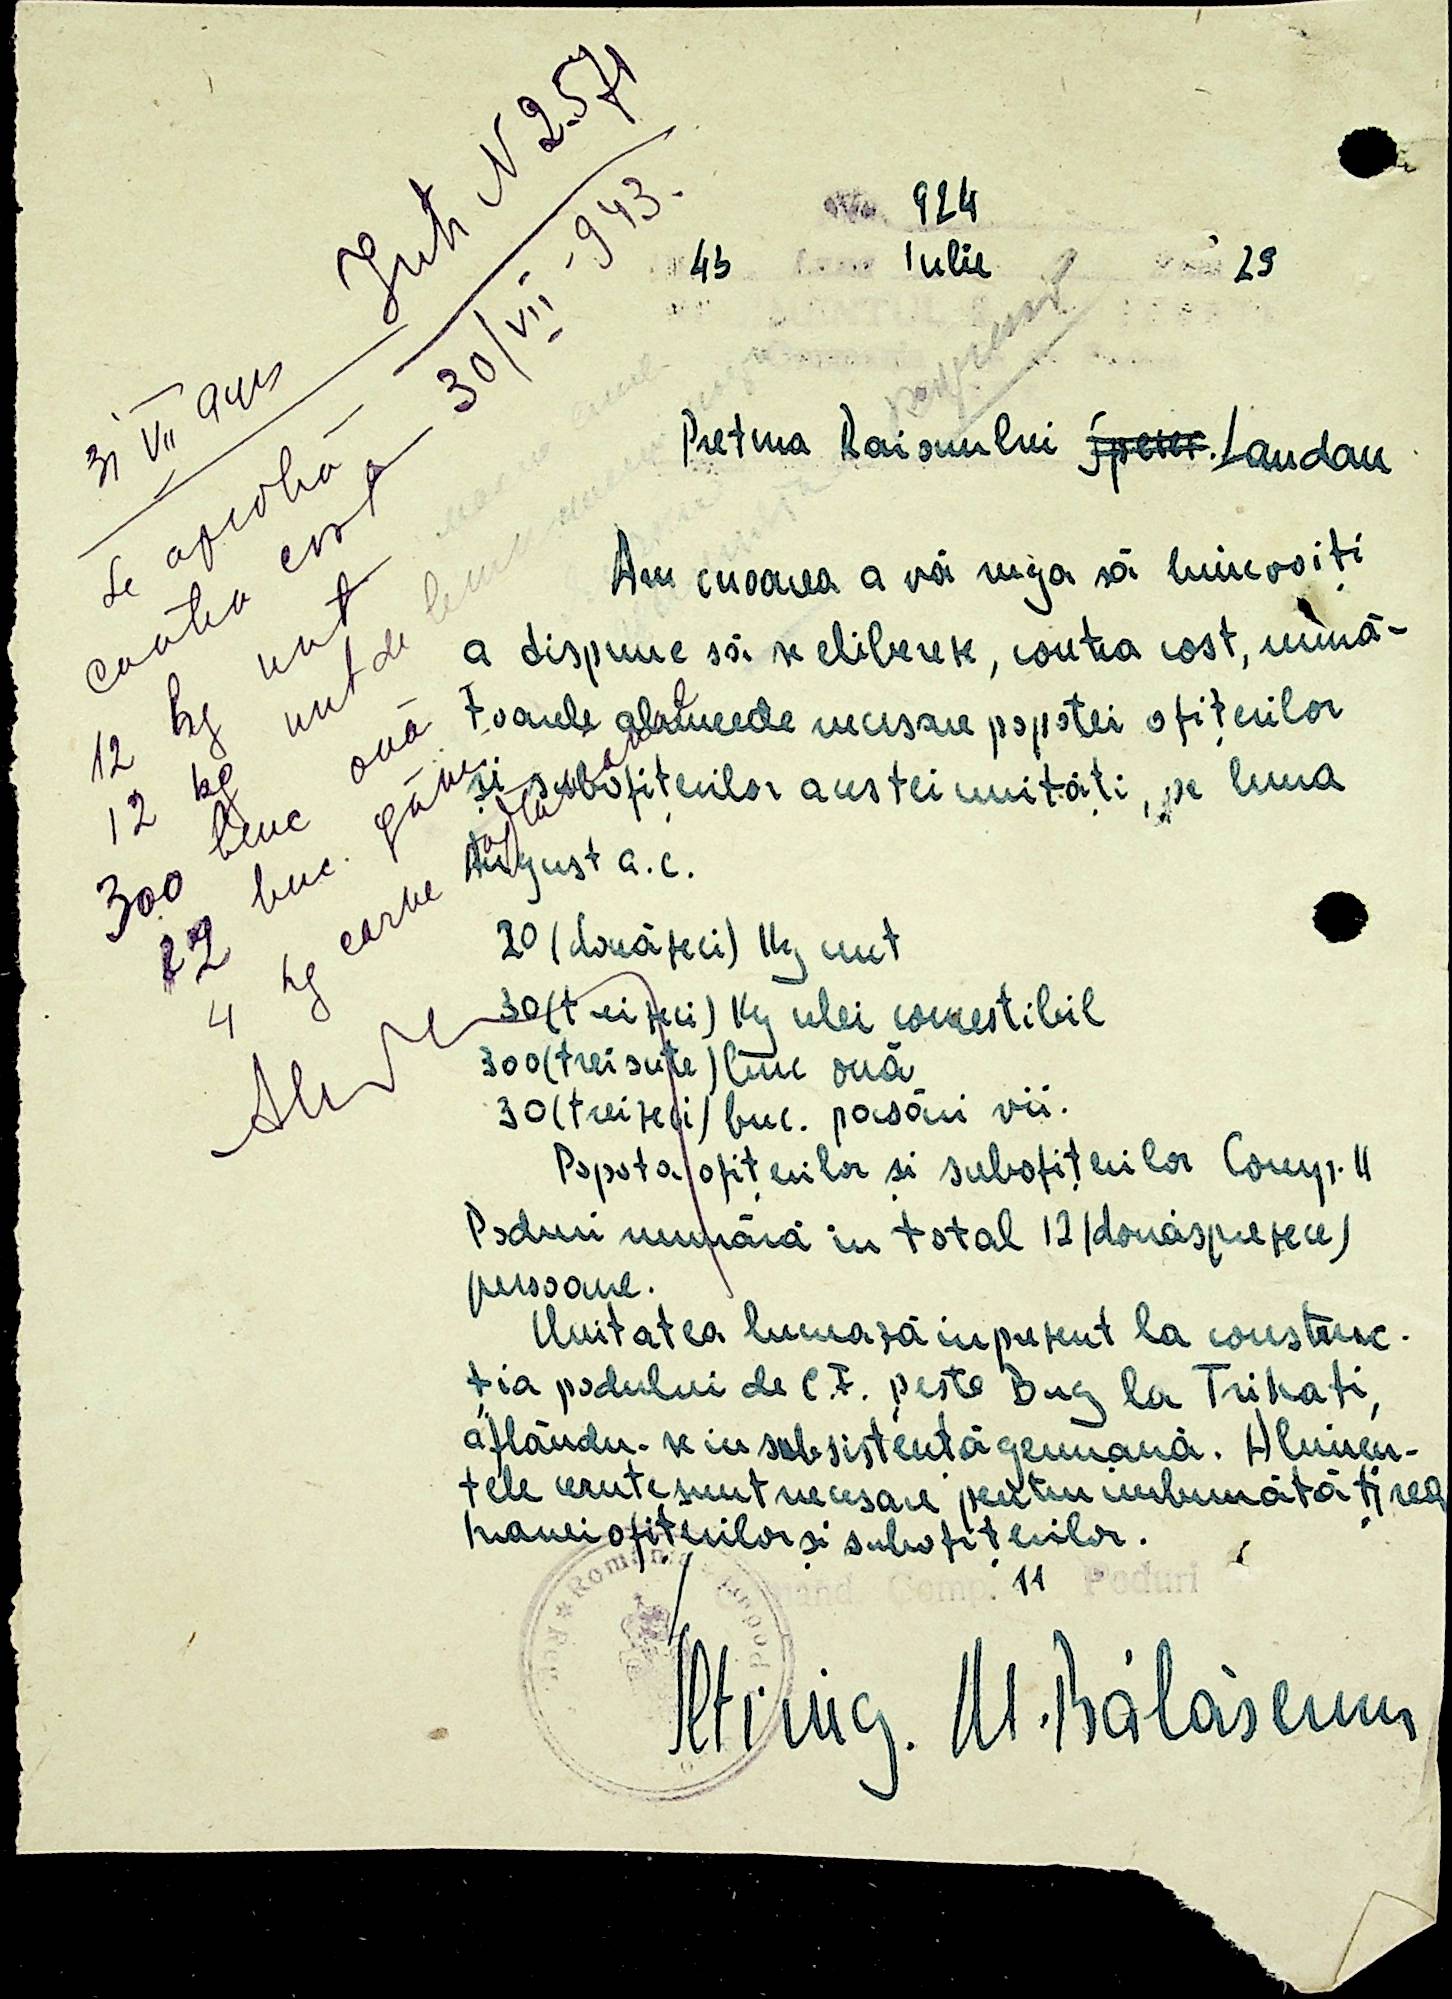 Intr N 2571
30/VII-943.
No. 924
43 Iulie 29
Pretura Raionului Landau
Am onoarea a vă ruga să binevoiți
a dispune să se elibereze, contra cost, urmă-
toarele alimente necesare popotei ofițerilor
și subofițerilor acestei unități, pe luna
August a.c.
20 (douăzeci) Kg unt
30 (treizeci) Kg ulei comestibil
300 (treisute) buc ouă
30 (treizeci) buc. pasări vii.
Popota ofițerilor și subofițerilor Comp. 11
Poduri numără in total 12 (douăsprezece)
persoane.
Unitatea lucrează in prezent la construc-
ția podului de C.F. peste Bug la Trihati,
aflându-se in subsistență germană. Alimen-
tele cerute sunt necesare pentru imbunătățirea
hranei ofițerilor și subofițerilor.
Comand. Comp. 11 Poduri
ing. M. Bălășescu
31 VII
Se aprobă
contra cost
12 kg unt
12 kg unt de
300 buc ouă
12 buc. găini
4 kg carne
România